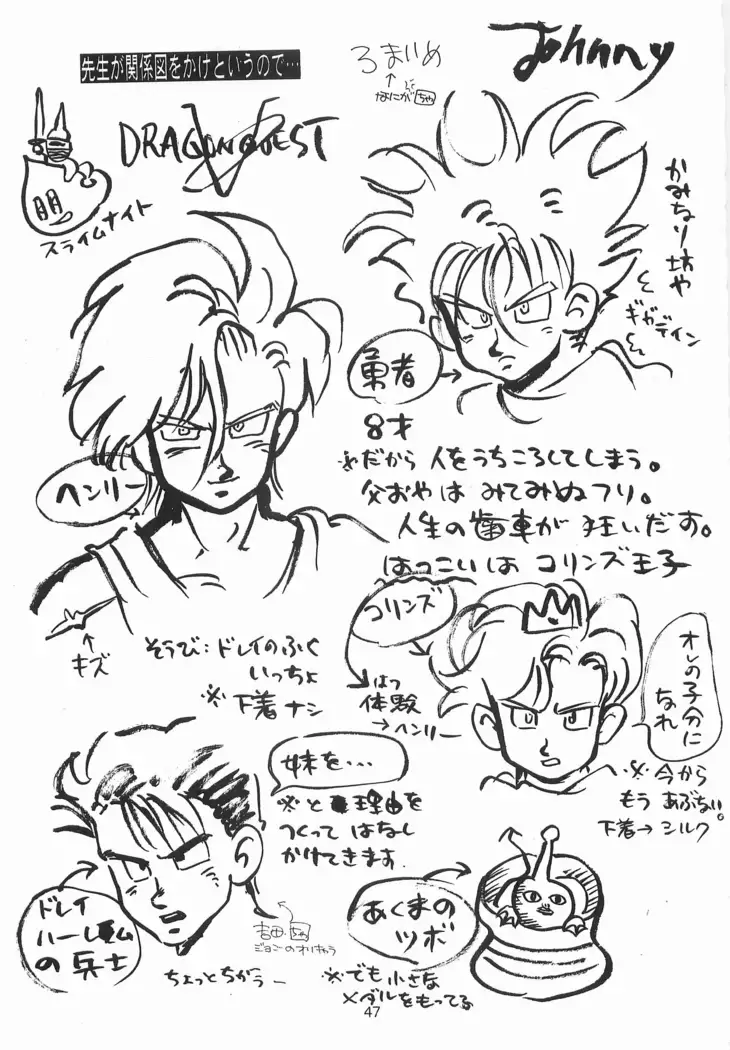 先生が関係図をかけというので…
Johnny
ろまいめ
なにが
DRAGON QUEST
V
スライムナイト
かみなり坊や
ギガデイン
勇者
8才
※だから 人をうちころしてしまう。
父おやは みてみぬフリ。
人生の歯車が 狂いだす。
はつこいは コリンズ王子
ヘンリー
キズ
そうび:ドレイのふく
いっちょ
※下着ナシ
コリンズ
はつ
体験
→ヘンリー
オレの子分に
なれ
※今から
もう あぶない。
下着→シルク
妹を…
※と 理由を
つくって はなし
かけてきます.
ドレイ
ハーレム
の兵士
吉田
ジョンのオリキャラ
ちょっとちがうー
あくまの
ツボ
※でも小さな
メダルをもってる
47